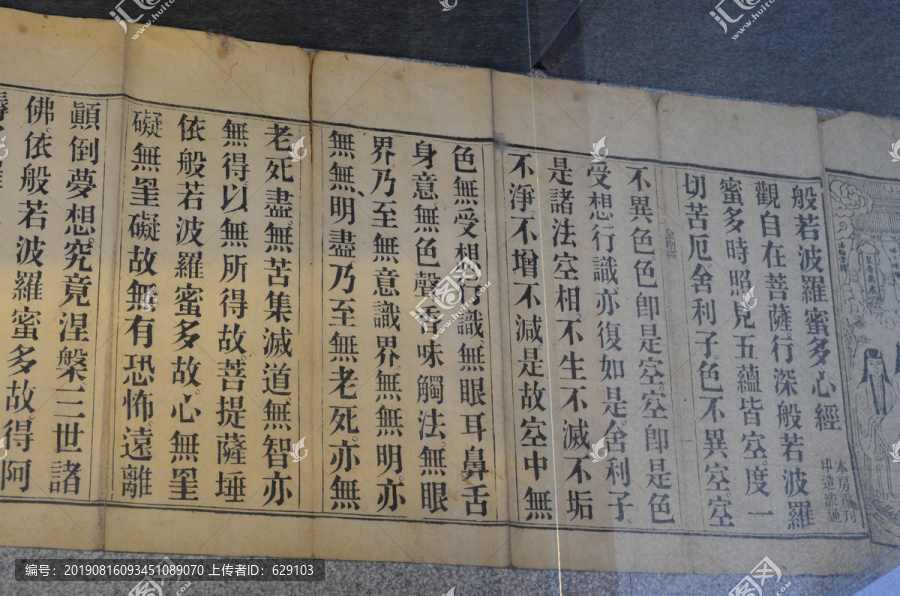 印造流通
般若波羅蜜多心經
觀自在菩薩行深般若波羅
蜜多時照見五蘊皆空度一
切苦厄舍利子色不異空空
不異色色卽是空空卽是色
受想行識亦復如是舍利子
是諸法空相不生不滅不垢
不淨不增不減是故空中無
色無受想行識無眼耳鼻舌
身意無色聲香味觸法無眼
界乃至無意識界無無明亦
無無明盡乃至無老死亦無
老死盡無苦集滅道無智亦
無得以無所得故菩提薩埵
依般若波羅蜜多故心無罣
礙無罣礙故無有恐怖遠離
顚倒夢想究竟涅槃三世諸
佛依般若波羅蜜多故得阿
编号:20190816093451089070 上传者ID:629103